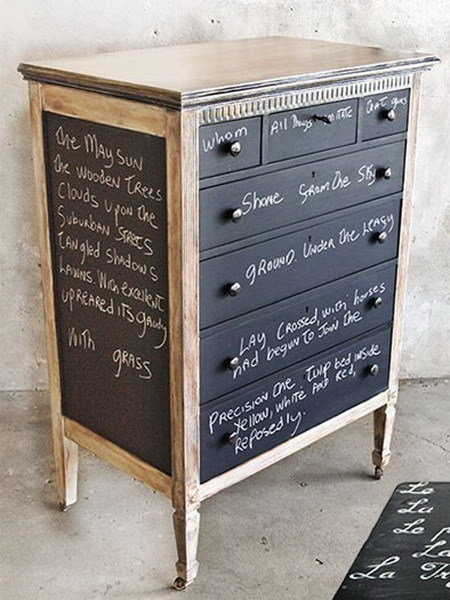 The May SUN
the wooden Trees
Clouds Upon the
Suburban Streets
tangled Shadows
Lawns. With excellent
upreared its gaudy
with GRASS
Whom
All Things imitate
that gues
Shone from the Sky
GROUND. Under the Leafy
LAY Crossed, with horses
HAD begun to Join the
Precision One Tulip bed inside
Yellow, white AND Red,
Reposedly.
Le
La
Le
La
La